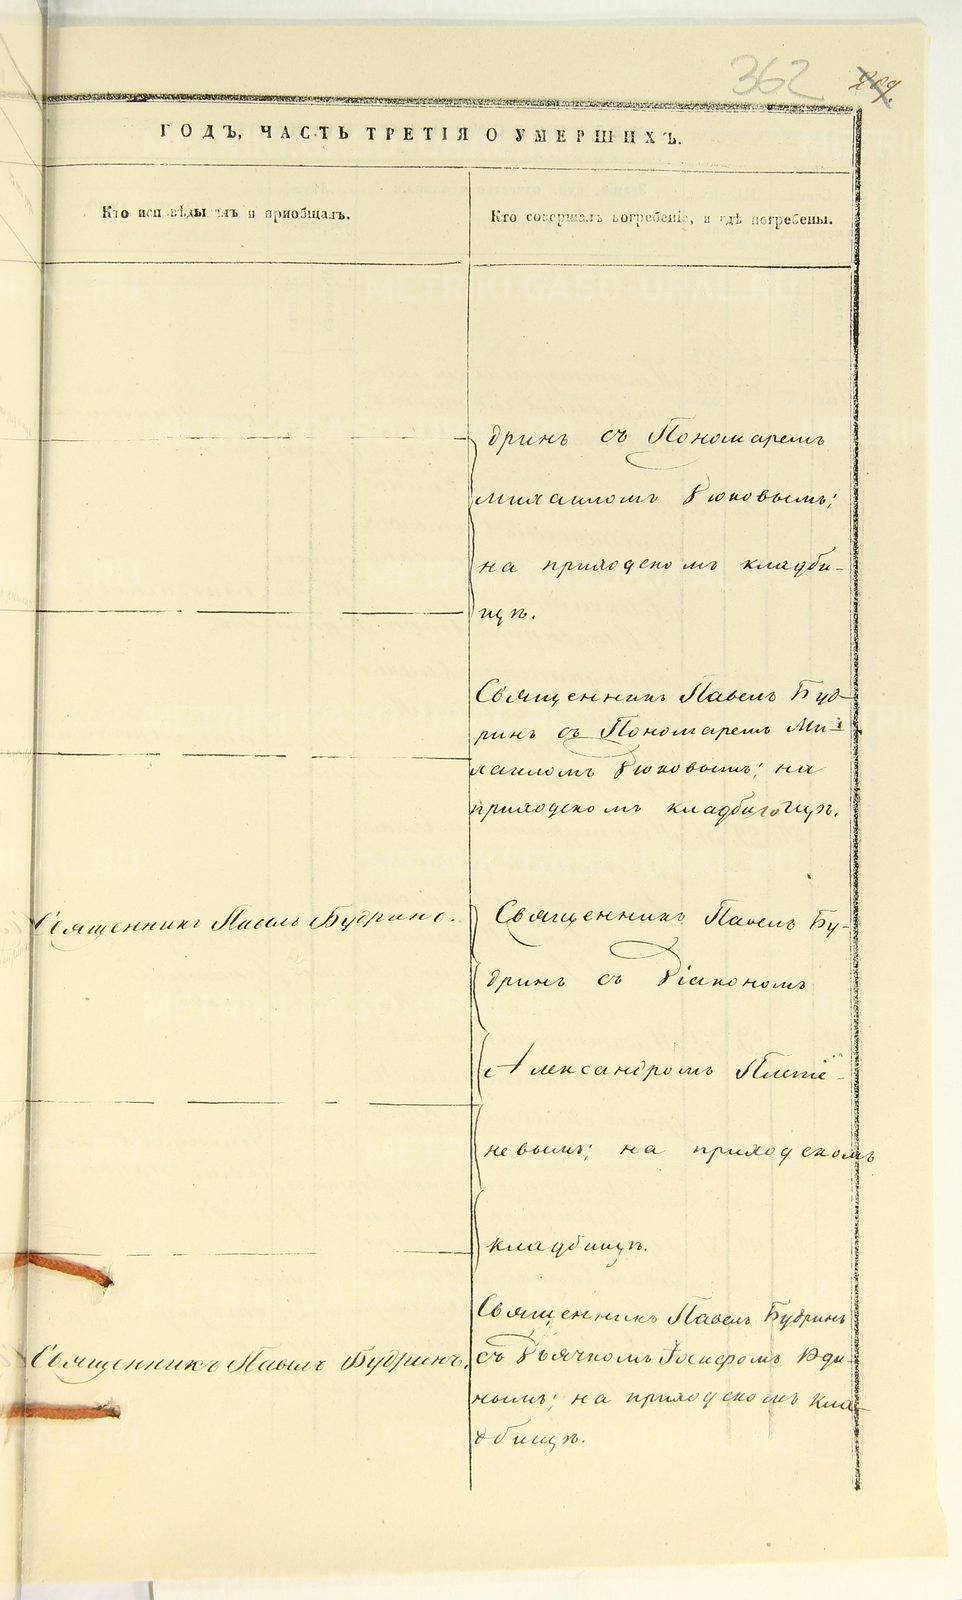 362
ГОДЪ, ЧАСТЬ ТРЕТІЯ О УМЕРШИХЪ.
Кто исповѣдывалъ и приобщалъ.
Кто совершалъ погребеніе, и гдѣ погребены.
дринъ съ Пономаремъ
Михаиломъ Дюковымъ;
на приходскомъ кладби-
щѣ.
Священникъ Павелъ Буд-
ринъ съ Пономаремъ Ми-
хаиломъ Дюковымъ; на
приходскомъ кладбищѣ.
Священникъ Павелъ Будринъ.
Священникъ Павелъ Бу-
дринъ съ Діакономъ
Александромъ Плетё-
невымъ; на приходскомъ
кладбищѣ.
Священникъ Павелъ Будринъ.
Священникъ Павелъ Будринъ
съ Дьячкомъ Іосифомъ
нымъ; на приходскомъ кла-
дбищѣ.
METRIKI.GASO-URAL.RU